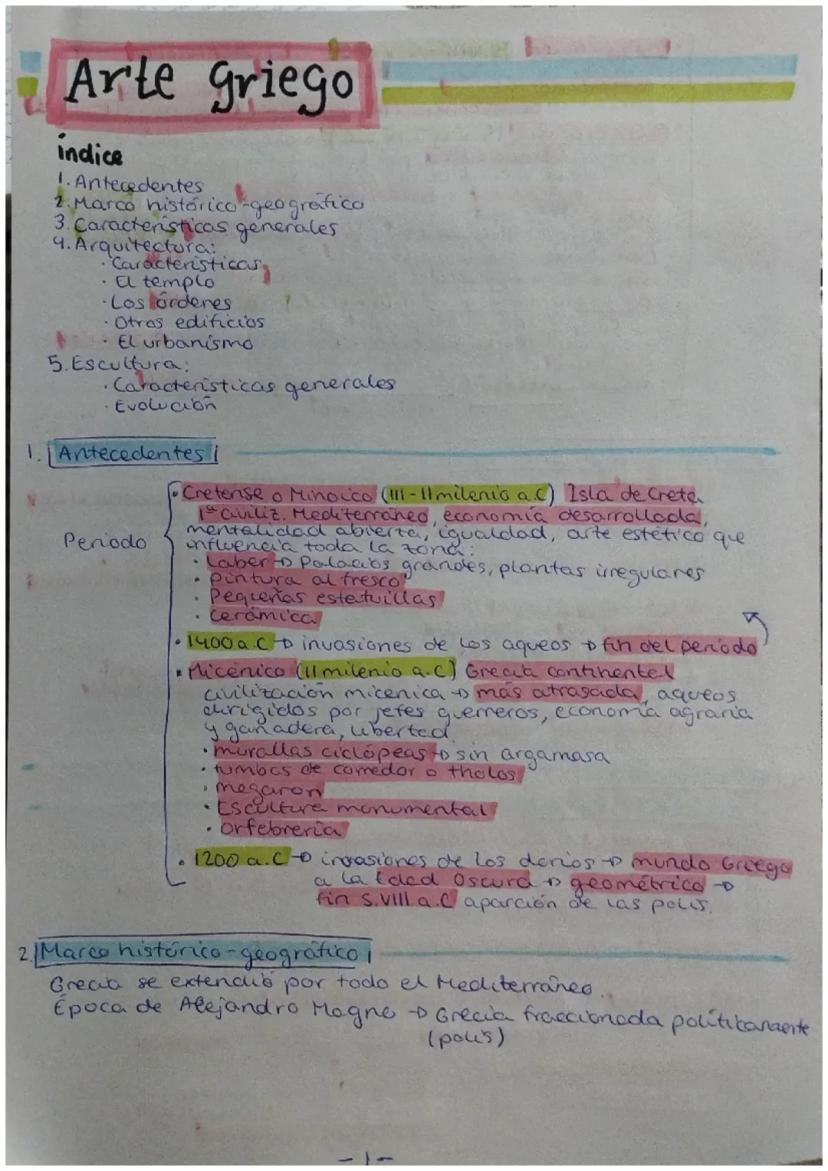 Arte griego
índice
1. Antecedentes
2. Marco histórico-geográfico
3. Características generales
4. Arquitectura:
· Características
· El templo
· Los órdenes
· Otros edificios
· El urbanismo
5. Escultura:
· Características generales
· Evolución
1. Antecedentes
Periodo
· Cretense o Minoico (III-II milenio a.C) Isla de Creta
1ª civiliz. Mediterráneo, economía desarrollada,
mentalidad abierta, igualdad, arte estético que
influencia toda la zona:
· Laber → Palacios grandes, plantas irregulares
· Pintura al fresco
· Pequeñas estatuillas
· Cerámica
· 1400 a.C → invasiones de los aqueos → fin del periodo
· Micénico (II milenio a.C) Grecia continental
civilización micenica → más atrasada, aqueos
dirigidos por jefes guerreros, economía agraria
y ganadera, libertad
· murallas ciclópeas → sin argamasa
· tumbas de corredor o tholos
· megaron
· Escultura monumental
· Orfebrería
· 1200 a.C → invasiones de los dorios → mundo Griego
a la Edad Oscura → geométrico →
fin S.VIII a.C aparción de las polis.
2. Marco histórico-geográfico
Grecia se extendió por todo el Mediterráneo.
Época de Alejandro Magno → Grecia fraccionada políticamente
(polis)
-1-